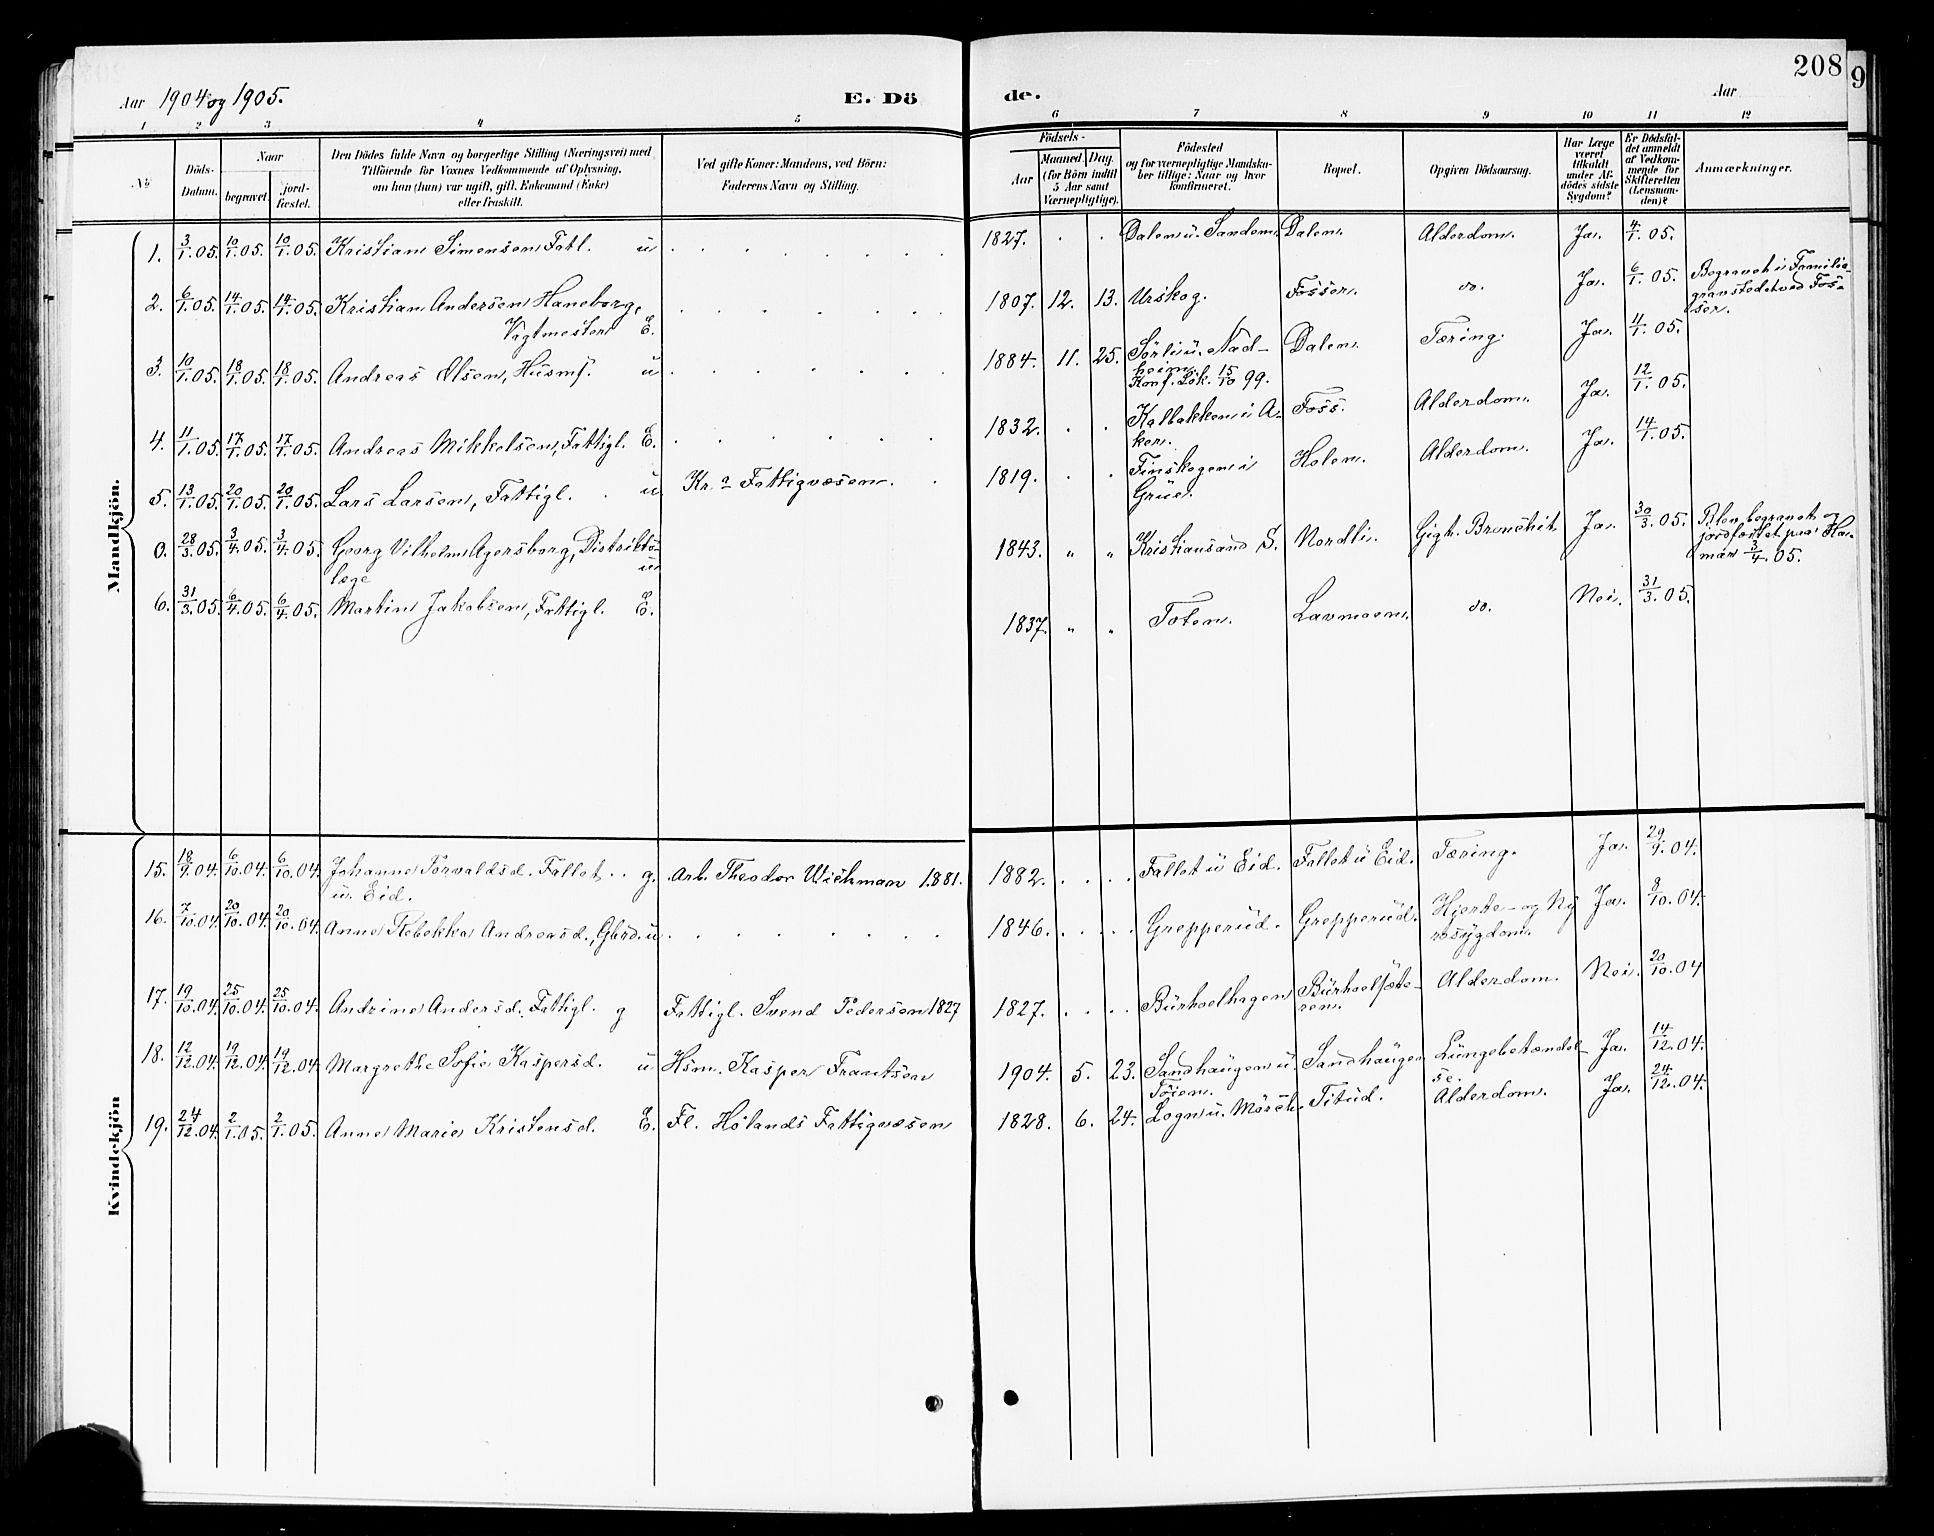 208
9
Aar 1904 og 1905.
E. Dö
de.
Aar
1 2 3 4 5 6 7 8 9 10 11 12
No
Döds-Datum.
Naar
begravet.
jord-fæstet.
Den Dödes fulde Navn og borgerlige Stilling (Næringsvei) med
Tilföiende for Voxnes Vedkommende af Oplysning,
om han (hun) var ugift, gift, Enkemand (Enke)
eller fraskilt.
Ved gifte Koner: Mandens, ved Börn:
Faderens Navn og Stilling.
Födsels-
Aar
Maaned. Dag.
(for Börn indtil
5 Aar samt
Værnepligtige).
Födested
og for værnepligtige Mandska-
ber tillige: Naar og hvor
konfirmeret.
Bopæl.
Opgiven Dödsaarsag.
Har Læge
været
tilkaldt
under Af-
dödes sidste
Sygdom?
Er Dödsfal-
det anmeldt
af Vedkom-
mende for
Skifteretten
(Lensman-
den)?
Anmærkninger.
Mandkjön.
1. 3/1.05. 10/1.05. 10/1.05. Kristian Simensen, Fatl. u 1827. Dalen u. Sandem. Dalen. Alderdom. Ja. 4/1.05.
2. 6/1.05. 14/1.05. 14/1.05. Kristian Andersen Haneborg, 1807. 12. 13. Urskog. Fosser. do. Ja. 6/1.05. Begravet i Familie-
Vagtmester E. gravstedet ved Fos-
ser.
3. 10/1.05. 18/1.05. 18/1.05. Andreas Olsen, Husmf. u 1884. 11. 25. Sörli u. Nad- Dalen. Tæring. Ja. 11/1.05.
heim.
Konf. Løk. 15/10 99.
4. 11/1.05. 17/1.05. 17/1.05. Andreas Mikkelsen, Fattigl. E. 1832. Kalbakken i A- Foss. Alderdom. Ja. 12/1.05.
ker.
5. 13/1.05. 20/1.05. 20/1.05. Lars Larsen, Fattigl. u Kr.a Fattigvæsen. 1819. Finskogen i Holem. Alderdom. Ja. 14/1.05.
Grue.
0. 28/3.05. 3/4.05. 3/4.05. Georg Vilhelm Agersborg, Distrikts- 1843. " " Kristiansand S. Nordli. Gigt. Bronchit. Ja. 30/3.05. begravet og
læge u jordfæstet paa Ha-
mar 3/4.05.
6. 31/3.05. 6/4.05. 6/4.05. Martin Jakobsen, Fattigl. E. 1837. " " Toten. Lavmoen. do. Nei. 31/3.05.
Kvindekjön
15. 18/9.04. 6/10.04. 6/10.04. Johanne Torvaldsd. Fallet g. Arb. Theodor Wichman 1881. 1882. Fallet u Eid. Fallet u Eid. Tæring. Ja. 29/9.04.
u. Eid.
16. 7/10.04. 20/10.04. 20/10.04. Anne Rebekka Andreasd., Gbrd. u 1846. Grepperud. Grepperud. Hjerte- og Ny Ja. 8/10.04.
resygdom.
17. 19/10.04. 25/10.04. 25/10.04. Andrine Andersd. Fattigl. g Fattigl. Svend Pedersen 1827 1827. Burholhagen Burholsæte- Alderdom. Nei. 20/10.04
ren.
18. 12/12.04. 19/12.04. 19/12.04. Margrethe Sofie Kaspersd. u Hsm. Kasper Frantsen 1904. 5. 23. Sandhaugen u. Sandhaugen Lungebetændel- Ja. 14/12.04.
Töien. se.
19. 24/12.04. 2/1.05. 2/1.05. Anne Marie Kristensd. E. Fl. Hölands Fattigvæsen 1828. 6. 24. Logn u. Mörch. Titud. Alderdom. Ja. 24/12.04.